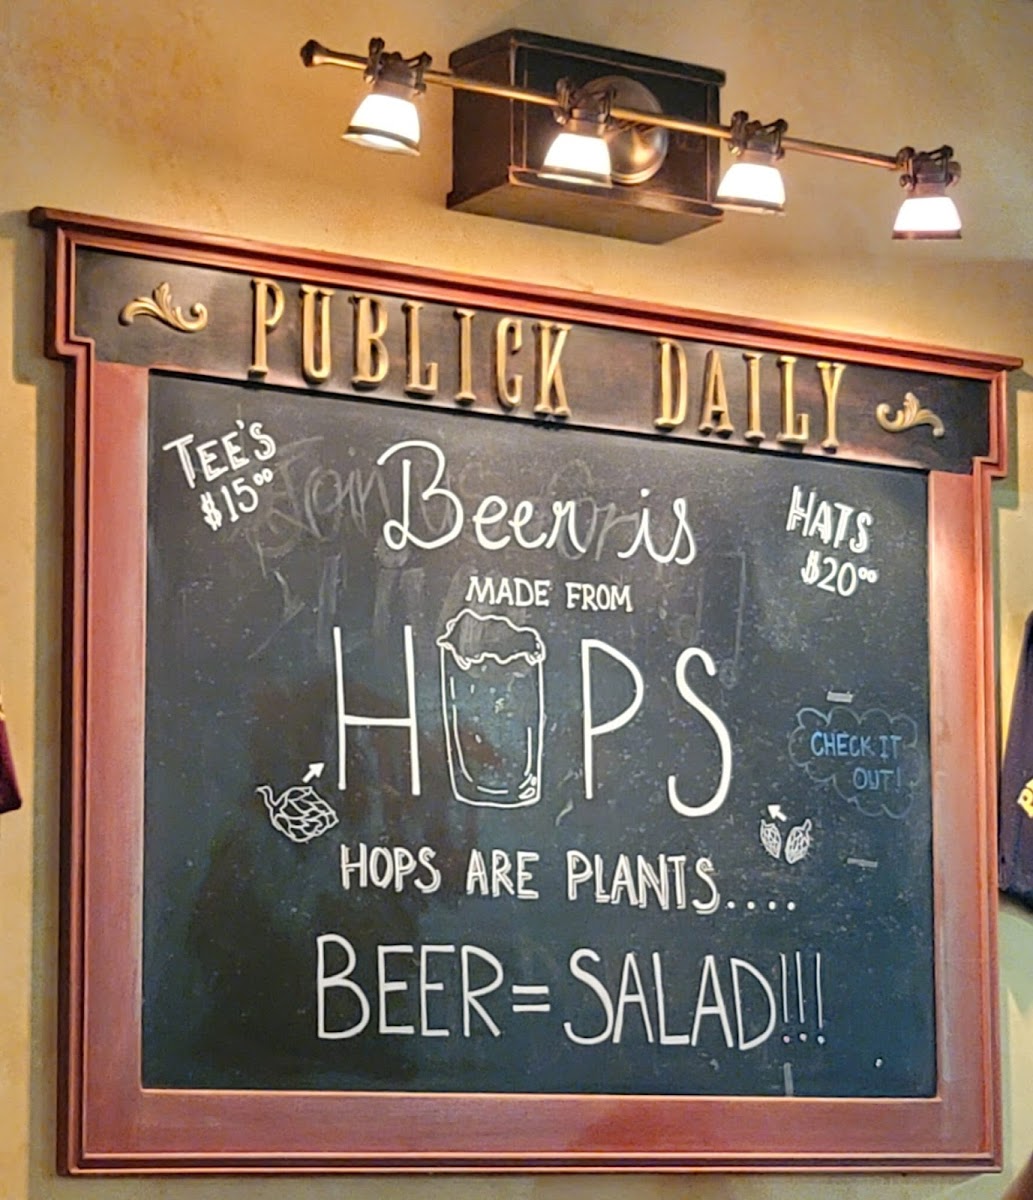 PUBLICK DAILY
TEE'S
$15⁰⁰
Beer is
HATS
$20⁰⁰
MADE FROM
H PS
CHECK IT
OUT!
HOPS ARE PLANTS....
BEER = SALAD!!!